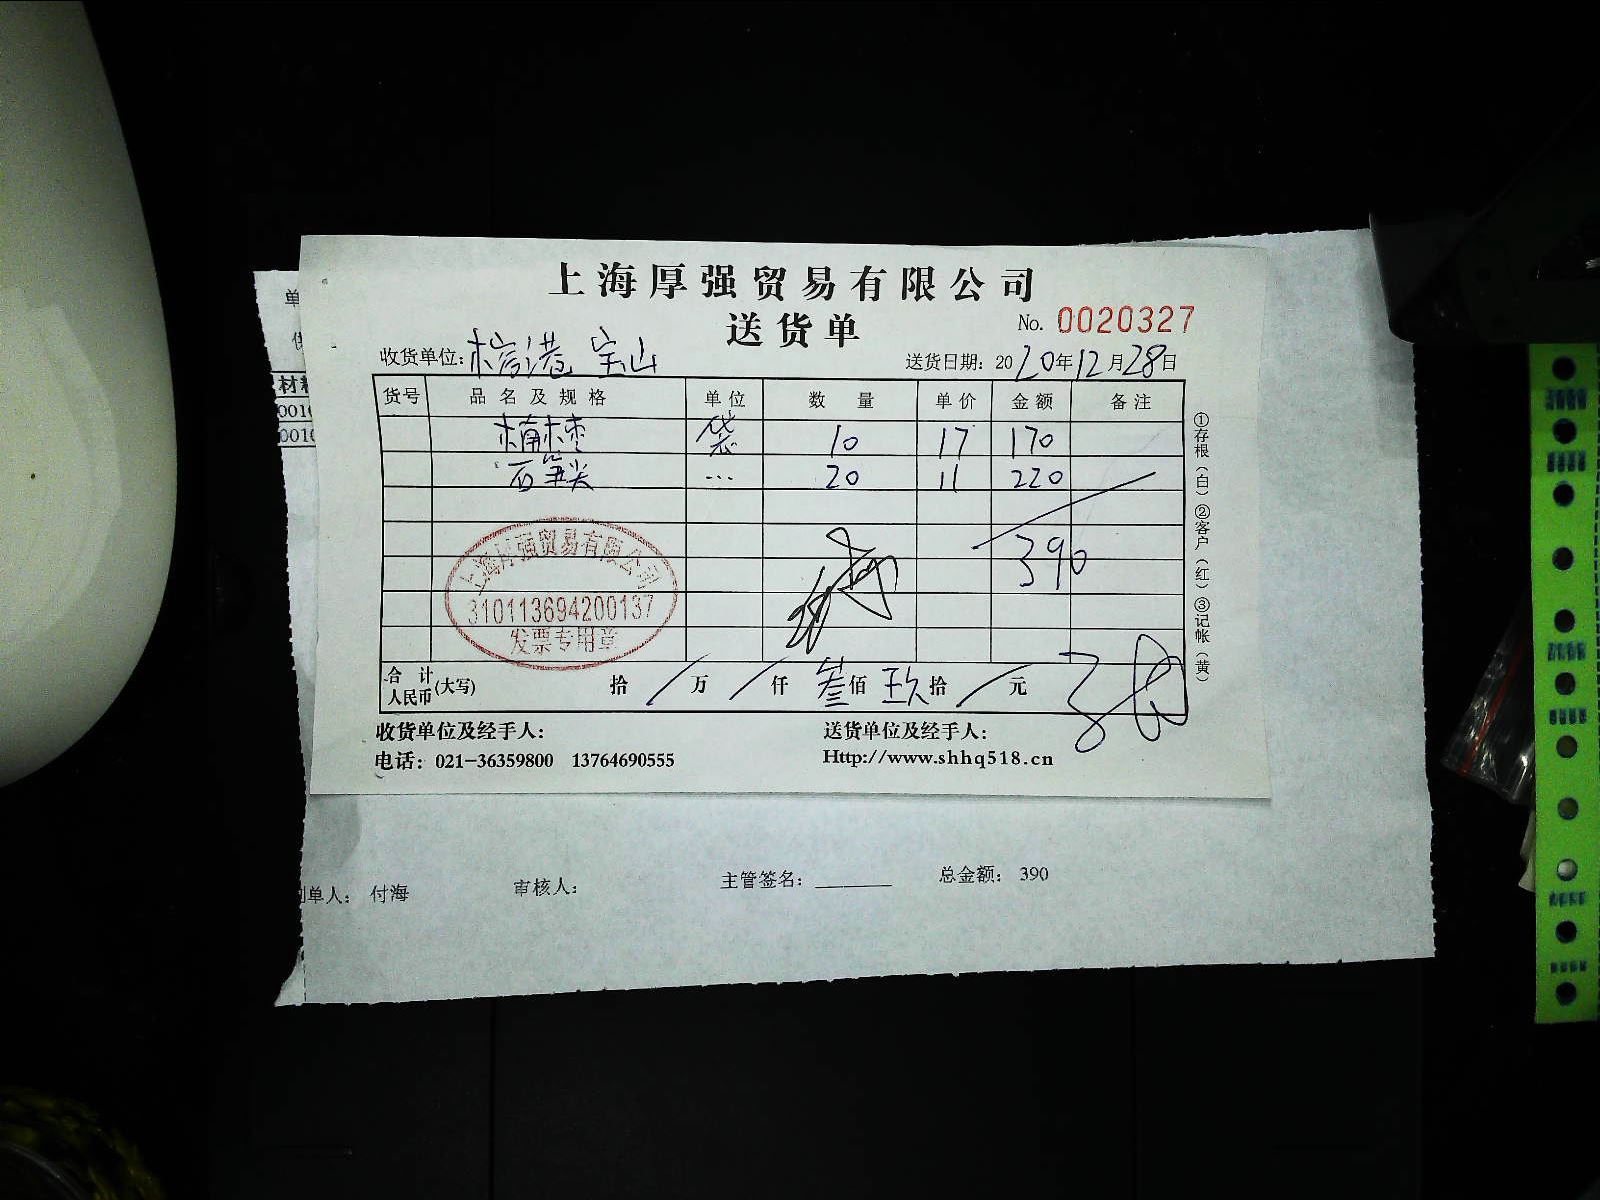 上海厚强贸易有限公司
送货单
No. 0020327
收货单位: 港 宝山
送货日期: 2020年12月28日
货号 品名及规格 单位 数量 单价 金额 备注
袋 10 17 170
石笋尖 … 20 11 220
390
上海厚强贸易有限公司
310113694200137
发票专用章
合计 人民币 (大写) 拾 / 万 / 仟 叁 佰 玖 拾 / 元
收货单位及经手人:
送货单位及经手人:
电话: 021-36359800 13764690555
Http://www.shhq518.cn
①存根(白)②客户(红)③记帐(黄)
单
材料
0010
0010
制单人: 付海
审核人:
主管签名:
总金额: 390